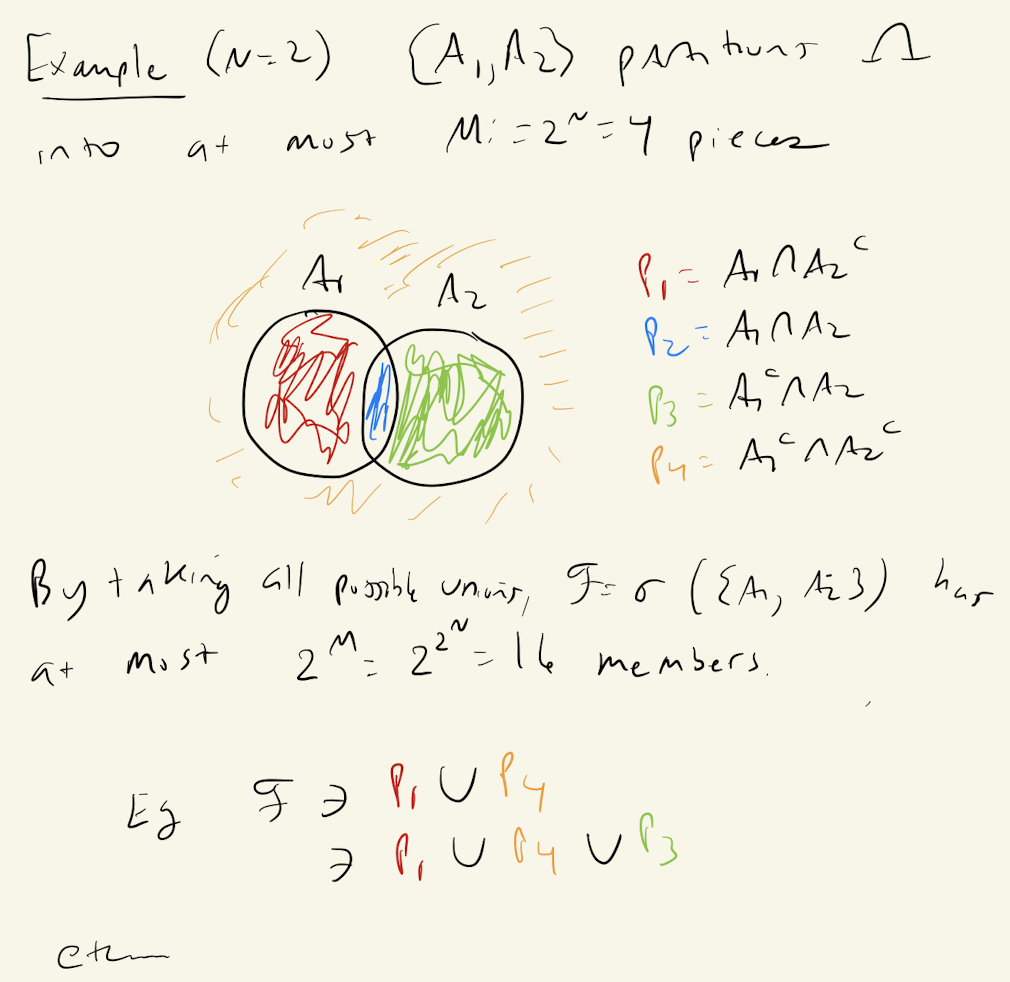 Example (N=2) {A₁, A₂} partitions Ω
into at most M:=2ᴺ=4 pieces
A₁ A₂
P₁ = A₁ ∩ A₂ᶜ
P₂ = A₁ ∩ A₂
P₃ = A₁ᶜ ∩ A₂
P₄ = A₁ᶜ ∩ A₂ᶜ
By taking all possible unions, ℱ = σ({A₁, A₂}) has
at most 2^M = 2^2^N = 16 members.
Eg ℱ ∋ P₁ ∪ P₄
∋ P₁ ∪ P₄ ∪ P₃